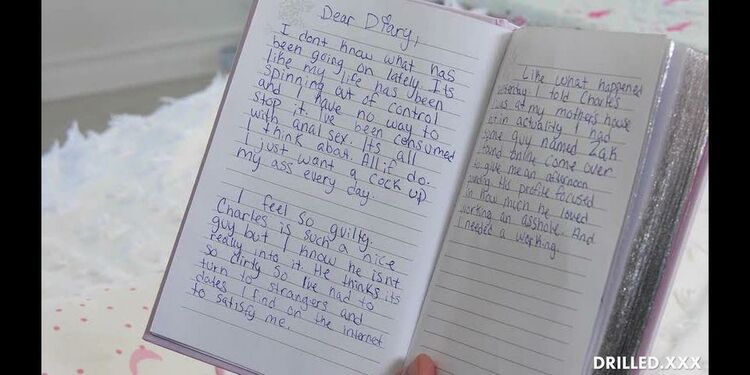 Dear Diary,
I dont know what has
been going on lately. Its
like my life has been
spinning out of control
and I have no way to
stop it. I've been consumed
with anal sex. Its all
I think about. All if do.
I just want a cock up
my ass every day.
I feel so guilty.
Charles is such a nice
guy but I know he isnt
really into it. He thinks its
so dirty so I've had to
turn to strangers and
dates I find on the internet
to satisfy me.
Like what happened
yesterday. I told Charles
I was at my mothers house
but in actuality I had
some guy named Zak
found online come over
to give me an afternoon
His profile focused
in how much he loved
working an asshole. And
I needed a working.
DRILLED.XXX